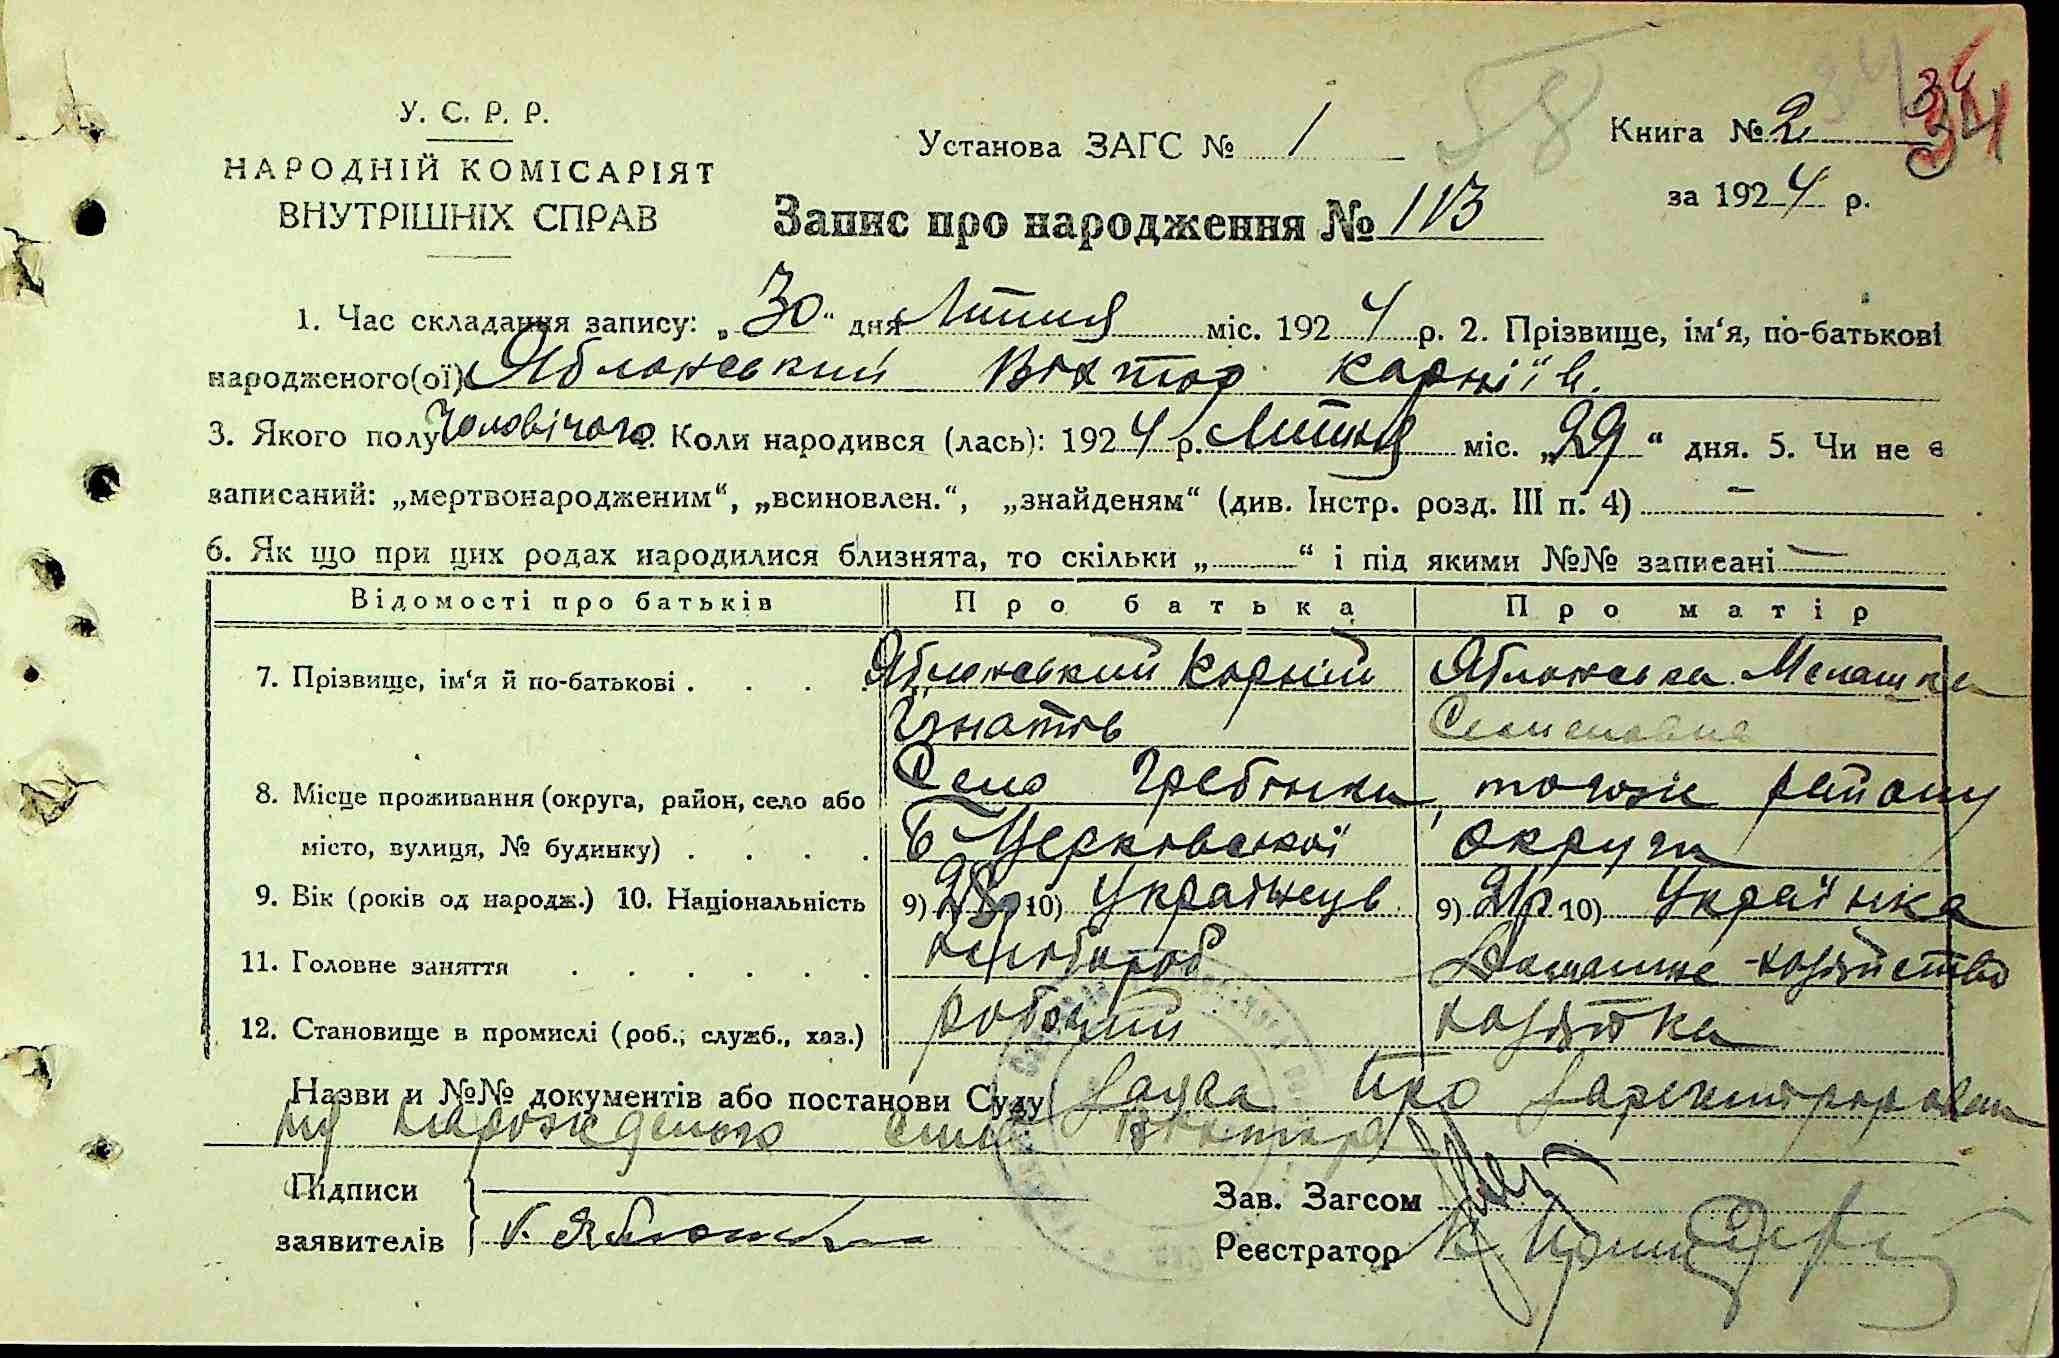 58
34
У. С. Р. Р.
НАРОДНІЙ КОМІСАРІЯТ
ВНУТРІШНІХ СПРАВ
Установа ЗАГС № 1
Книга № 2
за 1924 р.
Запис про народження № 113
1. Час складання запису: „30“ дня Липня міс. 1924 р. 2. Прізвище, ім‘я, по-батькові
народженого(ої) Яблонський Віктор Корніїв.
3. Якого полу Чоловічого. Коли народився (лась): 1924 р. Липня міс. „29“ дня. 5. Чи не є
записаний: „мертвонародженим“, „всиновлен.“, „знайденям“ (див. Інстр. розд. III п. 4) —
6. Як що при цих родах народилися близнята, то скільки „ “ і під якими №№ записані —
Відомості про батьків Про батька Про матір
7. Прізвище, ім‘я й по-батькові . . . . Яблонський Корній Яблонська Мелашка
Ігнатів Семеновна
8. Місце проживання (округа, район, село або Село Гребінки, того ж району
місто, вулиця, № будинку) . . . . Б Церковської округи
9. Вік (років од народж.) 10. Національність 9) 28 10) Українець 9) 21р 10) Українка
11. Головне заняття . . . . . . Хлібороб Домашнє хозяйство
12. Становище в промислі (роб., служб., хаз.) робочий хозяйка
Назви и №№ документів або постанови Суду Заява про
народженого сина Віктора
Підписи
заявителів К. Яблонський
Зав. Загсом
Реєстратор